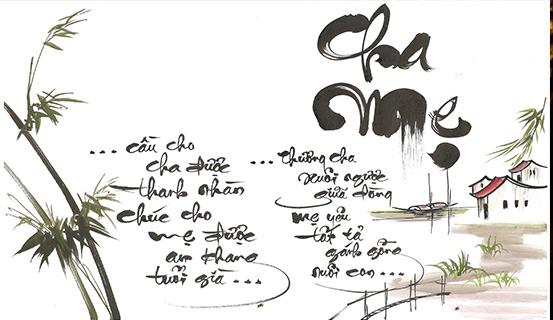 Cha
Mẹ
... cầu cho
cha được
thanh nhàn
chúc cho
mẹ được
an khang
tuổi già ...
... thương cha
xuôi ngược
giữa dòng
mẹ yêu
tất tả
gánh gồng
nuôi con ...